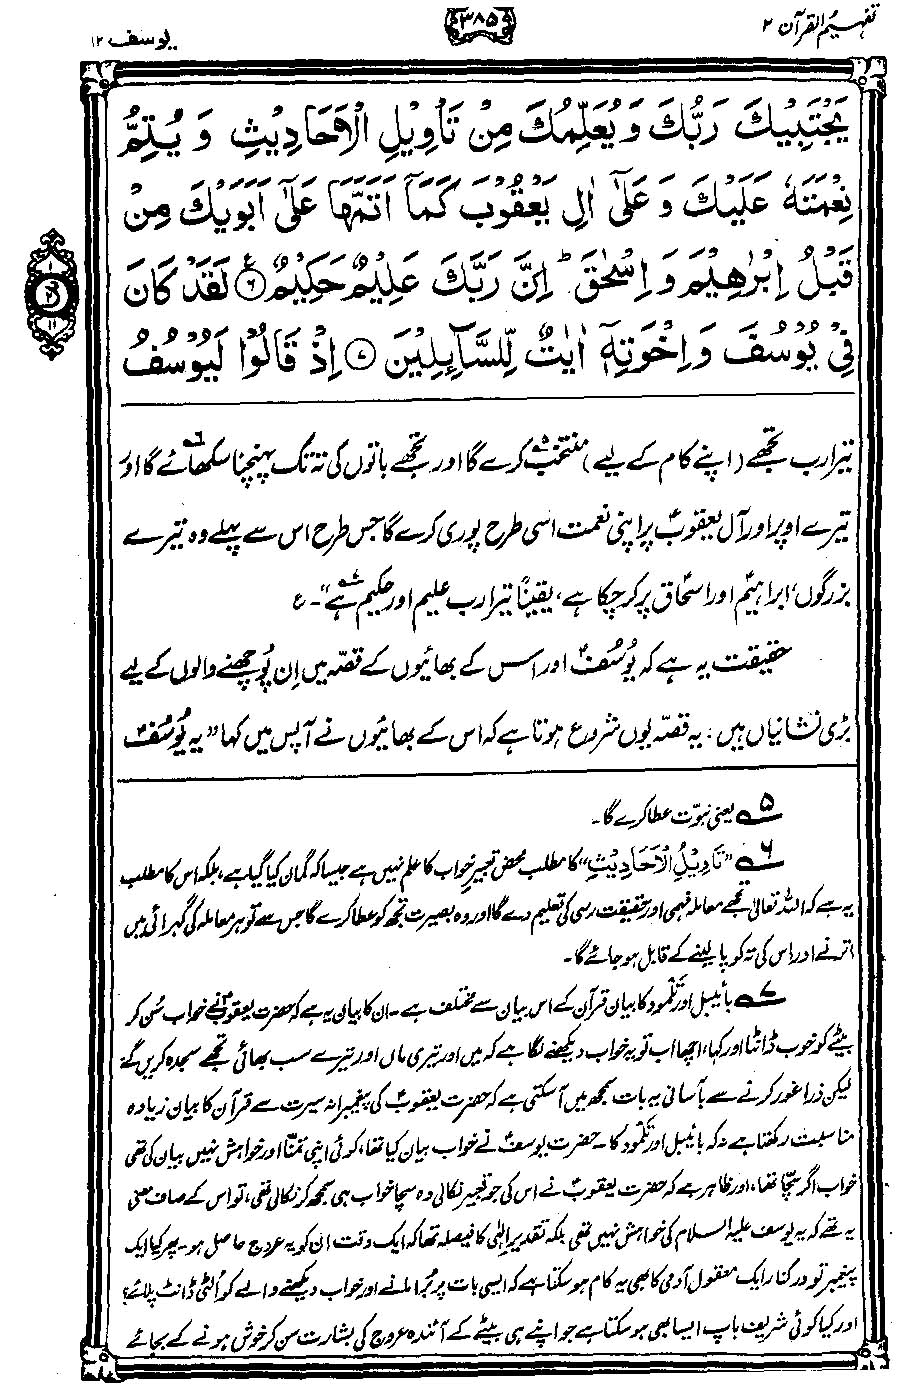 تفہیم القرآن ۲
۳۸۵
یوسف ۱۲
يَجْتَبِيْكَ رَبُّكَ وَيُعَلِّمُكَ مِنْ تَاْوِيْلِ الْاَحَادِيْثِ وَيُتِمُّ
نِعْمَتَهٗ عَلَيْكَ وَعَلٰۤى اٰلِ يَعْقُوْبَ كَمَاۤ اَتَمَّهَا عَلٰۤى اَبَوَيْكَ مِنْ
قَبْلُ اِبْرٰهِيْمَ وَاِسْحٰقَ ؕ اِنَّ رَبَّكَ عَلِيْمٌ حَكِيْمٌ ﴿۶﴾ لَقَدْ كَانَ
فِيْ يُوْسُفَ وَاِخْوَتِهٖۤ اٰيٰتٌ لِّلسَّآئِلِيْنَ ﴿۷﴾ اِذْ قَالُوْا لَيُوْسُفُ
تیرا رب تجھے (اپنے کام کے لیے) منتخب۵ کرے گا اور تجھے باتوں کی تہ تک پہنچنا سکھائے۶ گا اور
تیرے اوپر اور آلِ یعقوبؑ پر اپنی نعمت اسی طرح پوری کرے گا جس طرح اس سے پہلے وہ تیرے
بزرگوں، ابراہیمؑ اور اسحاقؑ پر کر چکا ہے، یقیناً تیرا رب علیم اور حکیم ہے۷“۔ ع
حقیقت یہ ہے کہ یُوسُفؑ اور اس کے بھائیوں کے قصّہ میں اِن پُوچھنے والوں کے لیے
بڑی نشانیاں ہیں۔ یہ قصّہ یوں شروع ہوتا ہے کہ اس کے بھائیوں نے آپس میں کہا ”یہ یُوسُفؑ
۵ یعنی نبوّت عطا کرے گا۔
۶ ”تَاوِیْلُ الْاَحَادِیْثِ“ کا مطلب محض تعبیرِ خواب کا علم نہیں ہے جیسا کہ گمان کیا گیا ہے، بلکہ اس کا مطلب
یہ ہے کہ اللہ تعالیٰ تجھے معاملہ فہمی اور حقیقت رسی کی تعلیم دے گا اور وہ بصیرت تجھ کو عطا کرے گا جس سے تو ہر معاملہ کی گہرائی میں
اترنے اور اس کی تہ کو پا لینے کے قابل ہو جائے گا۔
۷ بائیبل اور تَلمُود کا بیان قرآن کے اس بیان سے مختلف ہے۔ ان کا بیان یہ ہے کہ حضرت یعقوبؑ نے خواب سُن کر
بیٹے کو خوب ڈانٹا اور کہا، اچھا اب تو یہ خواب دیکھنے لگا ہے کہ میں اور تیری ماں اور تیرے سب بھائی تجھے سجدہ کریں گے
لیکن ذرا غور کرنے سے بآسانی یہ بات سمجھ میں آ سکتی ہے کہ حضرت یعقوبؑ کی پیغمبرانہ سیرت سے قرآن کا بیان زیادہ
مناسبت رکھتا ہے نہ کہ بائیبل اور تَلمُود کا۔ حضرت یوسفؑ نے خواب بیان کیا تھا، کوئی اپنی تمنّا اور خواہش نہیں بیان کی تھی
خواب اگر سچّا تھا، اور ظاہر ہے کہ حضرت یعقوبؑ نے اس کی جو تعبیر نکالی وہ سچا خواب ہی سمجھ کر نکالی تھی، تو اس کے صاف معنی
یہ تھے کہ یہ یوسف علیہ السلام کی خواہش نہیں تھی بلکہ تقدیرِ الٰہی کا فیصلہ تھا کہ ایک وقت ان کو یہ عروج حاصل ہو۔ پھر کیا ایک
پیغمبر تو درکنار ایک معقول آدمی کا بھی یہ کام ہو سکتا ہے کہ ایسی بات پر بُرا مانے اور خواب دیکھنے والے کو اُلٹی ڈانٹ پلائے؟
اور کیا کوئی شریف باپ ایسا بھی ہو سکتا ہے جو اپنے ہی بیٹے کے آئندہ عروج کی بشارت سن کر خوش ہونے کے بجائے